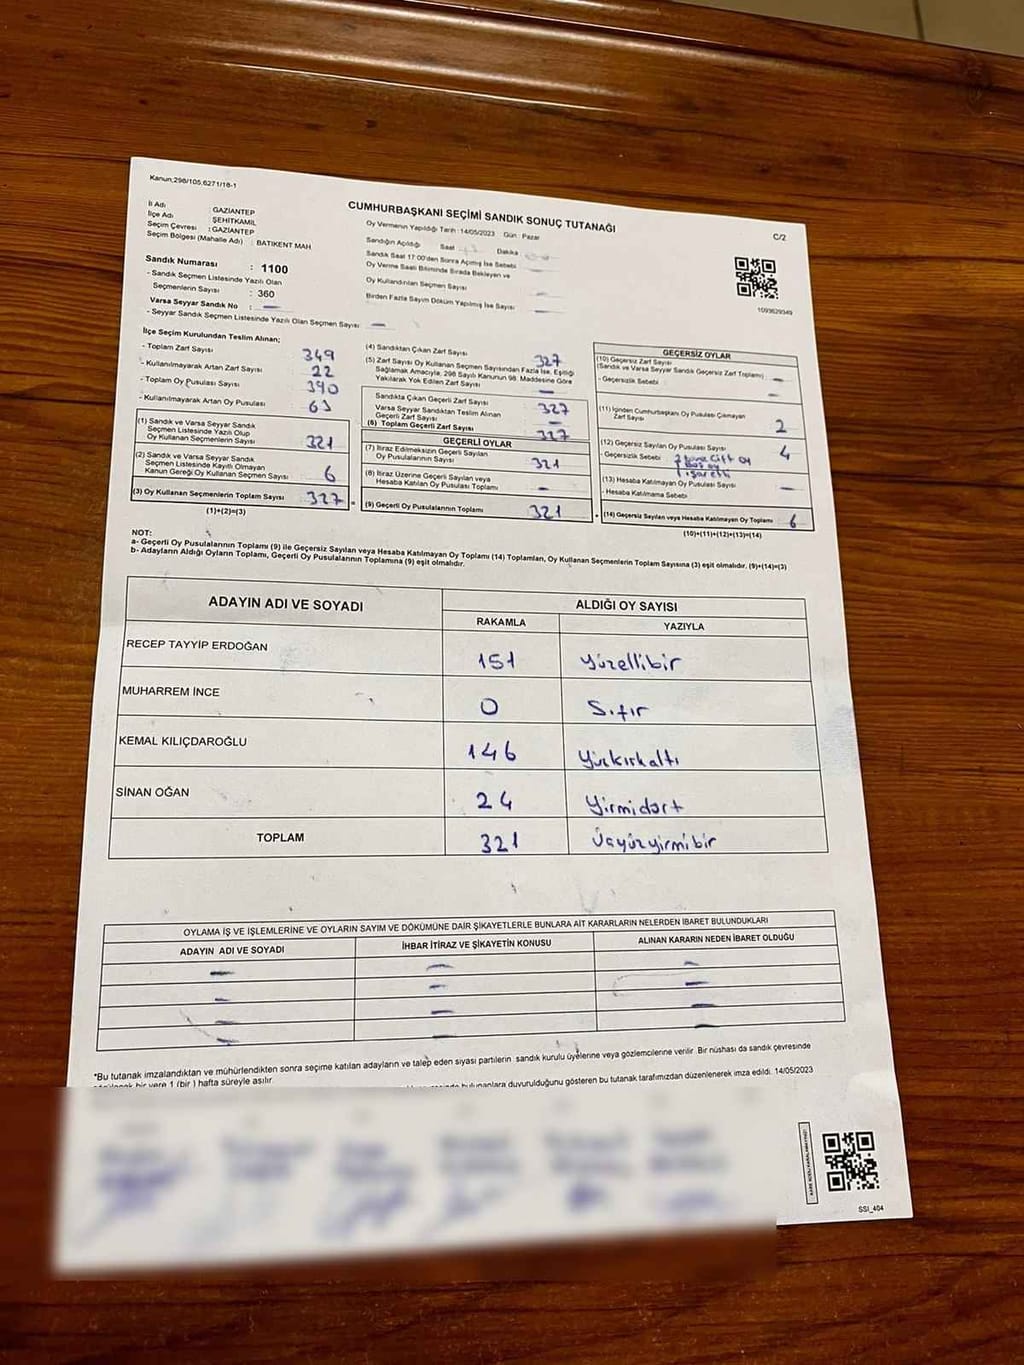 Kanun;298/105,6271/18-1
CUMHURBAŞKANI SEÇİMİ SANDIK SONUÇ TUTANAĞI
C/2
İl Adı : GAZİANTEP
İlçe Adı : ŞEHİTKAMİL
Seçim Çevresi : GAZİANTEP
Seçim Bölgesi (Mahalle Adı) : BATIKENT MAH
Sandık Numarası : 1100
- Sandık Seçmen Listesinde Yazılı Olan
Seçmenlerin Sayısı : 360
Varsa Seyyar Sandık No : —
- Seyyar Sandık Seçmen Listesinde Yazılı Olan Seçmen Sayısı: —
Oy Vermenin Yapıldığı Tarih :14/05/2023 Gün : Pazar
Sandığın Açıldığı Saat Dakika
Sandık Saat 17:00'den Sonra Açılmış İse Sebebi
Oy Verme Saati Bitiminde Sırada Bekleyen ve
Oy Kullandırılan Seçmen Sayısı —
Birden Fazla Sayım Döküm Yapılmış İse Sayısı —
1093629349
İlçe Seçim Kurulundan Teslim Alınan;
- Toplam Zarf Sayısı 349
- Kullanılmayarak Artan Zarf Sayısı 22
- Toplam Oy Pusulası Sayısı 390
- Kullanılmayarak Artan Oy Pusulası 63
(1) Sandık ve Varsa Seyyar Sandık
Seçmen Listesinde Yazılı Olup
Oy Kullanan Seçmenlerin Sayısı 321
(2) Sandık ve Varsa Seyyar Sandık
Seçmen Listesinde Kayıtlı Olmayan
Kanun Gereği Oy Kullanan Seçmen Sayısı 6
(3) Oy Kullanan Seçmenlerin Toplam Sayısı 327
(1)+(2)=(3)
(4) Sandıktan Çıkan Zarf Sayısı 327
(5) Zarf Sayısı Oy Kullanan Seçmen Sayısından Fazla İse, Eşitliği
Sağlamak Amacıyla, 298 Sayılı Kanunun 98. Maddesine Göre
Yakılarak Yok Edilen Zarf Sayısı —
Sandıkta Çıkan Geçerli Zarf Sayısı 327
Varsa Seyyar Sandıktan Teslim Alınan
Geçerli Zarf Sayısı —
(6) Toplam Geçerli Zarf Sayısı 327
GEÇERLİ OYLAR
(7) İtiraz Edilmeksizin Geçerli Sayılan
Oy Pusulalarının Sayısı 321
(8) İtiraz Üzerine Geçerli Sayılan veya
Hesaba Katılan Oy Pusulası Toplamı —
(9) Geçerli Oy Pusulalarının Toplamı 321
GEÇERSİZ OYLAR
(10) Geçersiz Zarf Sayısı
(Sandık ve Varsa Seyyar Sandık Geçersiz Zarf Toplamı) —
- Geçersizlik Sebebi —
(11) İçinden Cumhurbaşkanı Oy Pusulası Çıkmayan
Zarf Sayısı 2
(12) Geçersiz Sayılan Oy Pusulası Sayısı 4
- Geçersizlik Sebebi çift oy
boş oy
(13) Hesaba Katılmayan Oy Pusulası Sayısı —
- Hesaba Katılmama Sebebi
(14) Geçersiz Sayılan veya Hesaba Katılmayan Oy Toplamı 6
(10)+(11)+(12)+(13)=(14)
NOT:
a- Geçerli Oy Pusulalarının Toplamı (9) ile Geçersiz Sayılan veya Hesaba Katılmayan Oy Toplamı (14) Toplamları, Oy Kullanan Seçmenlerin Toplam Sayısına (3) eşit olmalıdır. (9)+(14)=(3)
b- Adayların Aldığı Oyların Toplamı, Geçerli Oy Pusulalarının Toplamına (9) eşit olmalıdır.
ADAYIN ADI VE SOYADI ALDIĞI OY SAYISI
RAKAMLA YAZIYLA
RECEP TAYYİP ERDOĞAN 151 yüzellibir
MUHARREM İNCE 0 Sıfır
KEMAL KILIÇDAROĞLU 146 yüzkırkaltı
SİNAN OĞAN 24 Yirmidört
TOPLAM 321 Üçyüzyirmibir
OYLAMA İŞ VE İŞLEMLERİNE VE OYLARIN SAYIM VE DÖKÜMÜNE DAİR ŞİKAYETLERLE BUNLARA AİT KARARLARIN NELERDEN İBARET BULUNDUKLARI
ADAYIN ADI VE SOYADI İHBAR İTİRAZ VE ŞİKAYETİN KONUSU ALINAN KARARIN NEDEN İBARET OLDUĞU
— — —
— — —
— — —
— — —
*Bu tutanak imzalandıktan ve mühürlendikten sonra seçime katılan adayların ve talep eden siyasi partilerin sandık kurulu üyelerine veya gözlemcilerine verilir. Bir nüshası da sandık çevresinde
bir yere 1 (bir ) hafta süreyle asılır.
bulunanlara duyurulduğunu gösteren bu tutanak tarafımızdan düzenlenerek imza edildi. 14/05/2023
SSI_404